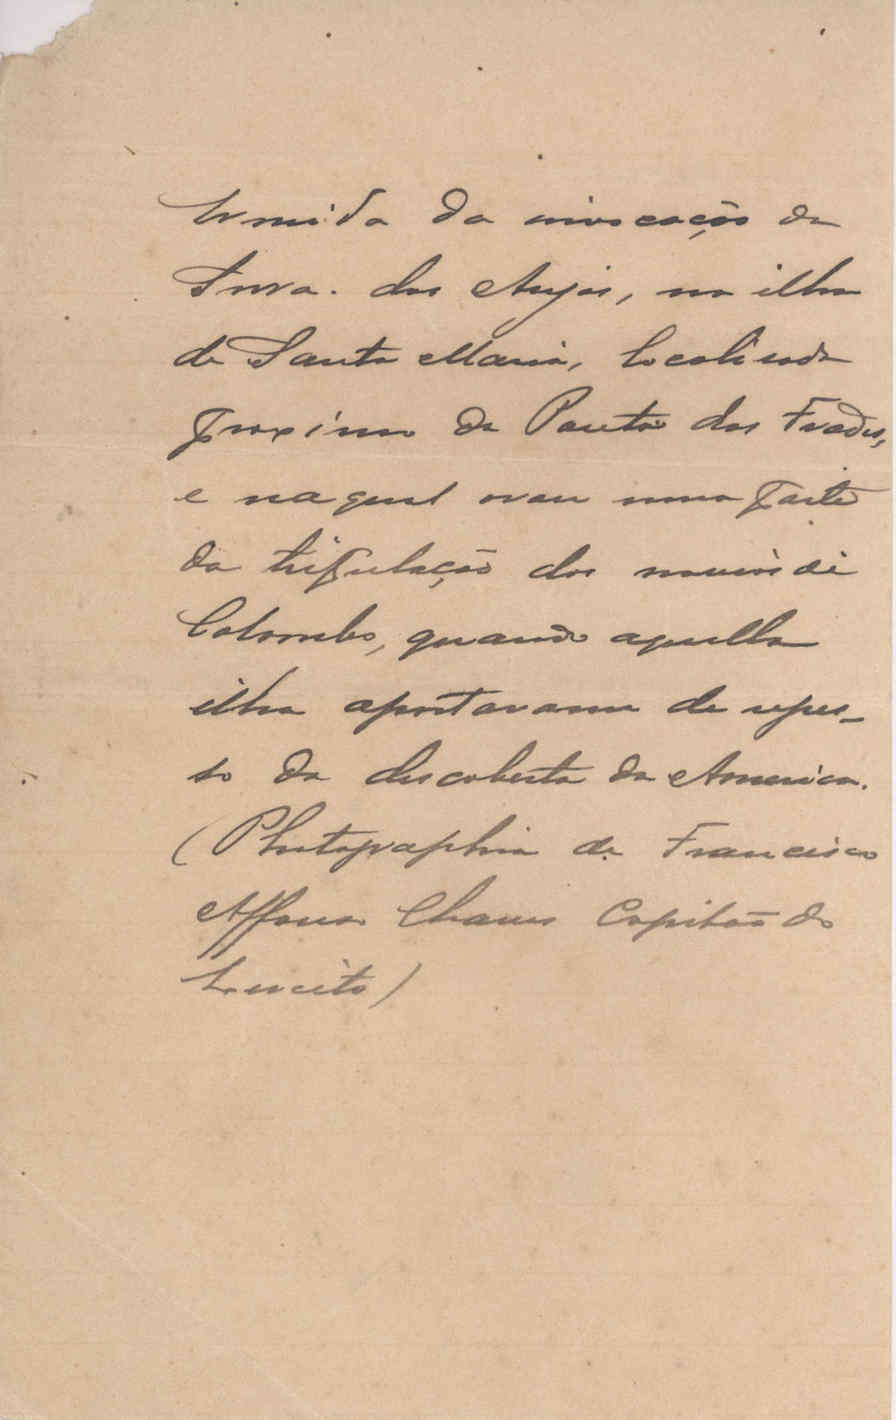 Ermida da invocação de
Snra. dos Anjos, na ilha
de Santa Maria, localisada
proximo da Ponta dos Frades,
e na qual orou uma parte
da tripulação dos navios de
Colombo, quando aquella
ilha aportaram de regres-
so da descoberta da America.
(Photographia de Francisco
Affonso Chaves Capitão do
Exercito)